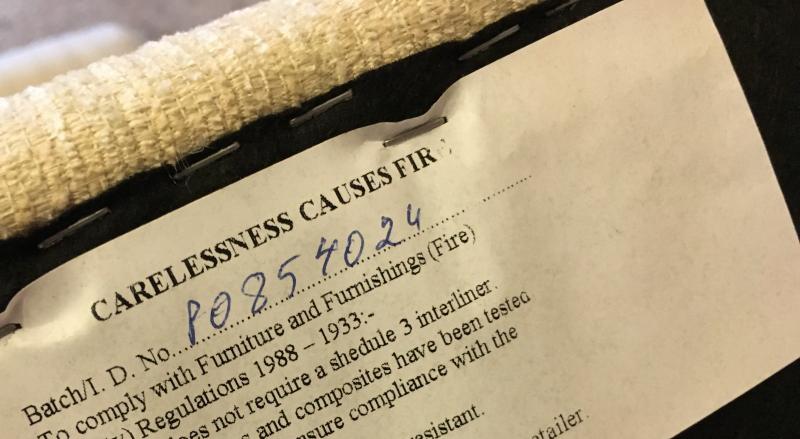 CARELESSNESS CAUSES FIR
Batch/I. D. No....P0854024....
To comply with Furniture and Furnishings (Fire)
) Regulations 1988 – 1933:-
does not require a shedule 3 interliner.
and composites have been tested
nsure compliance with the
esistant.
etailer.